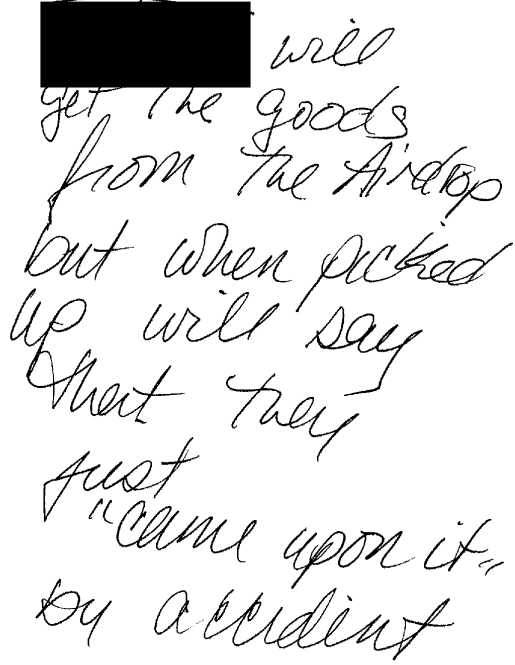 will
get the goods
from the Airdrop
but when picked
up will say
that they
just
"came upon it"
by accident